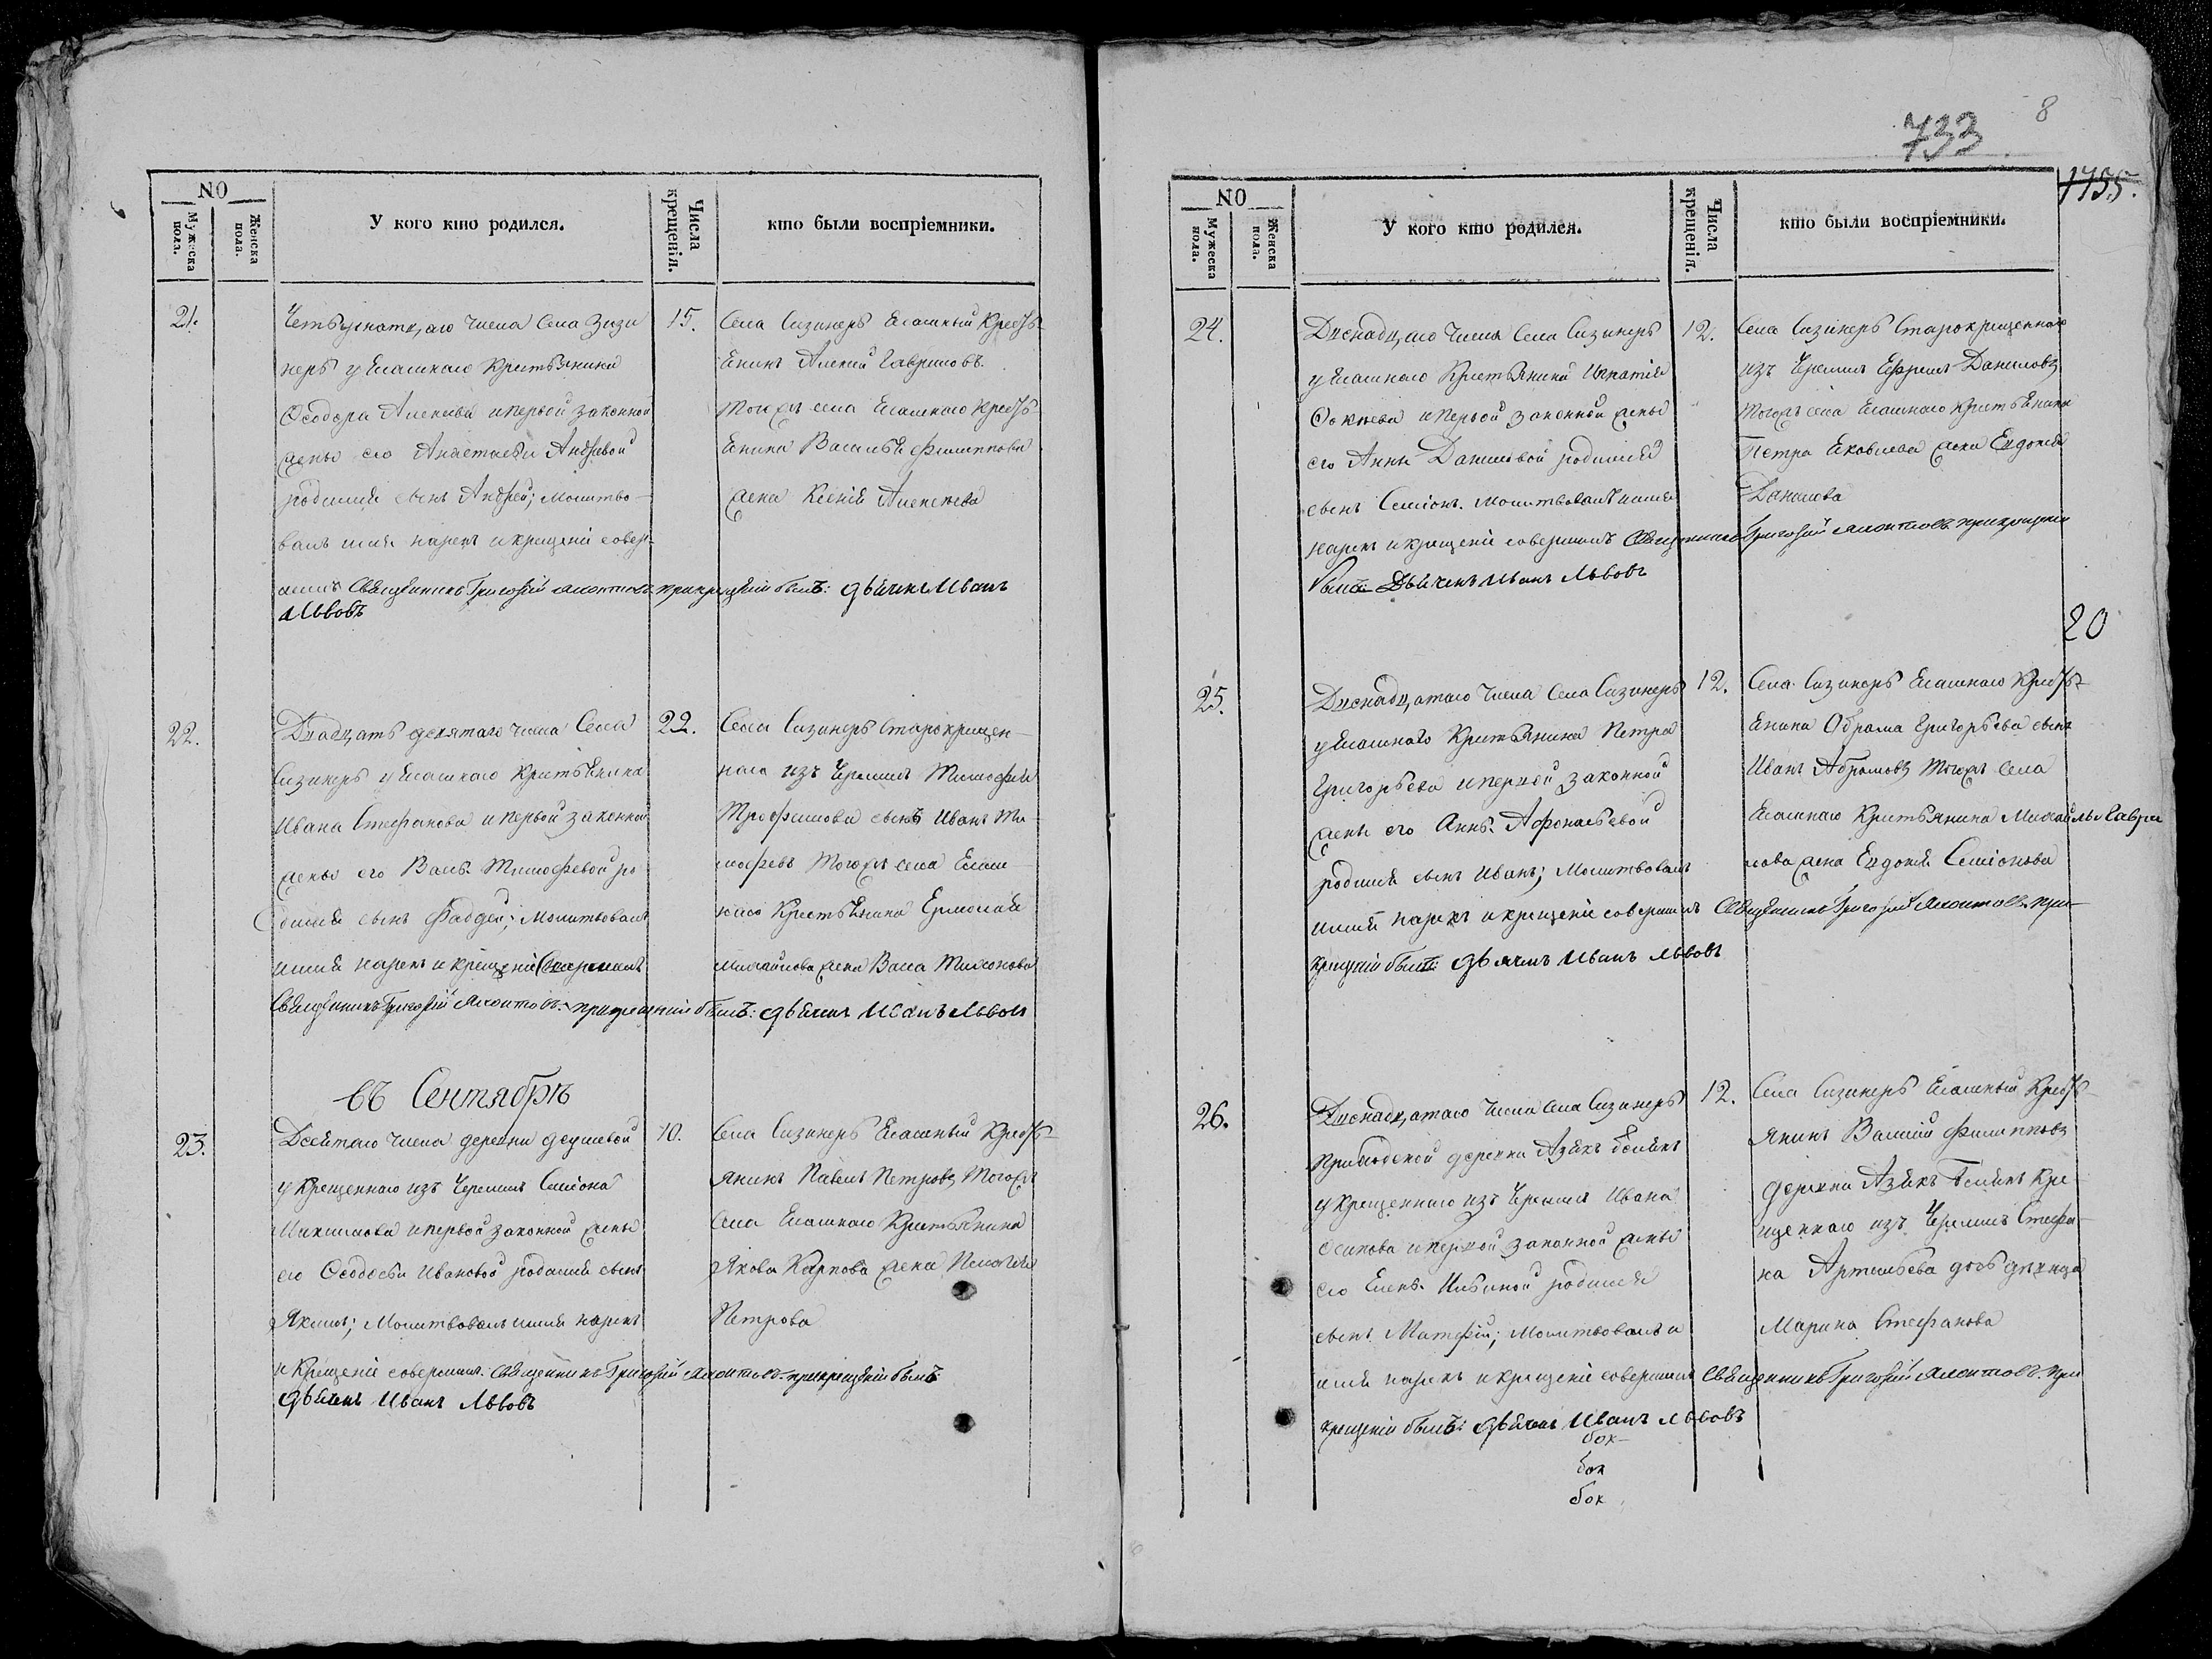 8
733
1755.
NO
Мужеска пола.
Женска пола.
У кого кто родился.
Числа крещенія.
кто были воспріемники.
21.
Четырнатц,аго числа Села Сизи
неръ у Ясашнаго Крестьянина
Ѳеодора Алексѣева и первой законной
жены его Анастасіи Андреевой
родился сынъ Андрей; Молитво-
валъ имя нарекъ и крещеніе совер-
шилъ Священникъ Григорій при крещеніи былъ: дьячекъ Иванъ
Львовъ
15.
Села Сизинеръ Ясашный Кресть-
янинъ Алексѣй Гавриловъ.
тогожъ села Ясашнаго Кресть-
янина Василья Филиппова
жена Ксенія Алексѣева
22.
Двадцать девятаго числа Села
Сизинеръ у Ясашнаго Крестьянина
Ивана Стефанова и первой законной
жены его Вассы Тимофеевой ро
дился сынъ Фаддей; Молитвовалъ
имя нарекъ и крещеніе Совершилъ
Священникъ Григорій при крещеніи былъ: дьячекъ Иванъ Львовъ
22.
Села Сизинеръ Старокрещен-
наго изъ Черемисъ Тимофея
Трофимова сынъ Иванъ Ти-
мофеевъ Тогожъ села Ясаш-
наго Крестьянина Ермолая
Михайлова жена Васса Тихонова
въ Сентябрѣ
23.
Десятаго числа деревни
у Крещеннаго изъ Черемисъ Симіона
Максимова и первой законной жены
его Ѳеодосьи Ивановой родился сынъ
Якимъ; Молитвовалъ имя нарекъ
и Крещеніе совершилъ Священникъ Григорій при крещеніи былъ
дьячекъ Иванъ Львовъ
10.
Села Сизинеръ Ясашный Кресть-
янинъ Павелъ Петровъ Тогожъ
Села Ясашнаго Крестьянина
Якова Карпова жена Пелагея
Петрова
NO
Мужеска пола.
Женска пола.
У кого кто родился.
Числа крещенія.
кто были воспріемники.
24.
Двенадц,аго числа Села Сизинеръ
у Ясашнаго Крестьянина Игнатія
и первой законной жены
его Анны Даниловой родился
сынъ Симіонъ. Молитвовалъ имя
нарекъ и крещеніе совершилъ Священникъ Григорій при крещеніи
былъ Дьячекъ Иванъ Львовъ
12.
Села Сизинеръ Старокрещенной
изъ Черемисъ Ефремъ Даниловъ
Тогожъ села Ясашнаго крестьянина
Петра Яковлева жена Евдокія
Данилова
20
25.
Двенадц,атаго числа Села Сизинеръ
у Ясашнаго Крестьянина Петра
Григорьева и первой законной
жены его Анны Афонасьевой
родился сынъ Иванъ; Молитвовалъ
имя нарекъ и крещеніе совершилъ Священникъ Григорій при-
крещеніи былъ: дьячекъ Иванъ Львовъ
12.
Села Сизинеръ Ясашнаго Кресть-
янина Обрама Григорьева сынъ
Иванъ Абрамовъ Тогожъ Села
Ясашнаго Крестьянина Михайлы Гаври
лова жена Евдокія Семіонова
26.
Двенадц,атаго числа села Сизинеръ
деревни
у Крещеннаго изъ Черемисъ Ивана
Осипова и первой законной жены
его Елены Ильиной родился
сынъ Матфей; Молитвовалъ и
имя нарекъ и крещеніе совершилъ Священникъ Григорій при
крещеніи былъ: дьячекъ Иванъ Львовъ
12.
Села Сизинеръ Ясашный Кресть-
янинъ Василій Филипповъ
деревни Кре-
щеннаго изъ Черемисъ Стефа-
на Артемьева дочь девица
Марина Стефанова
бок
бок
бок